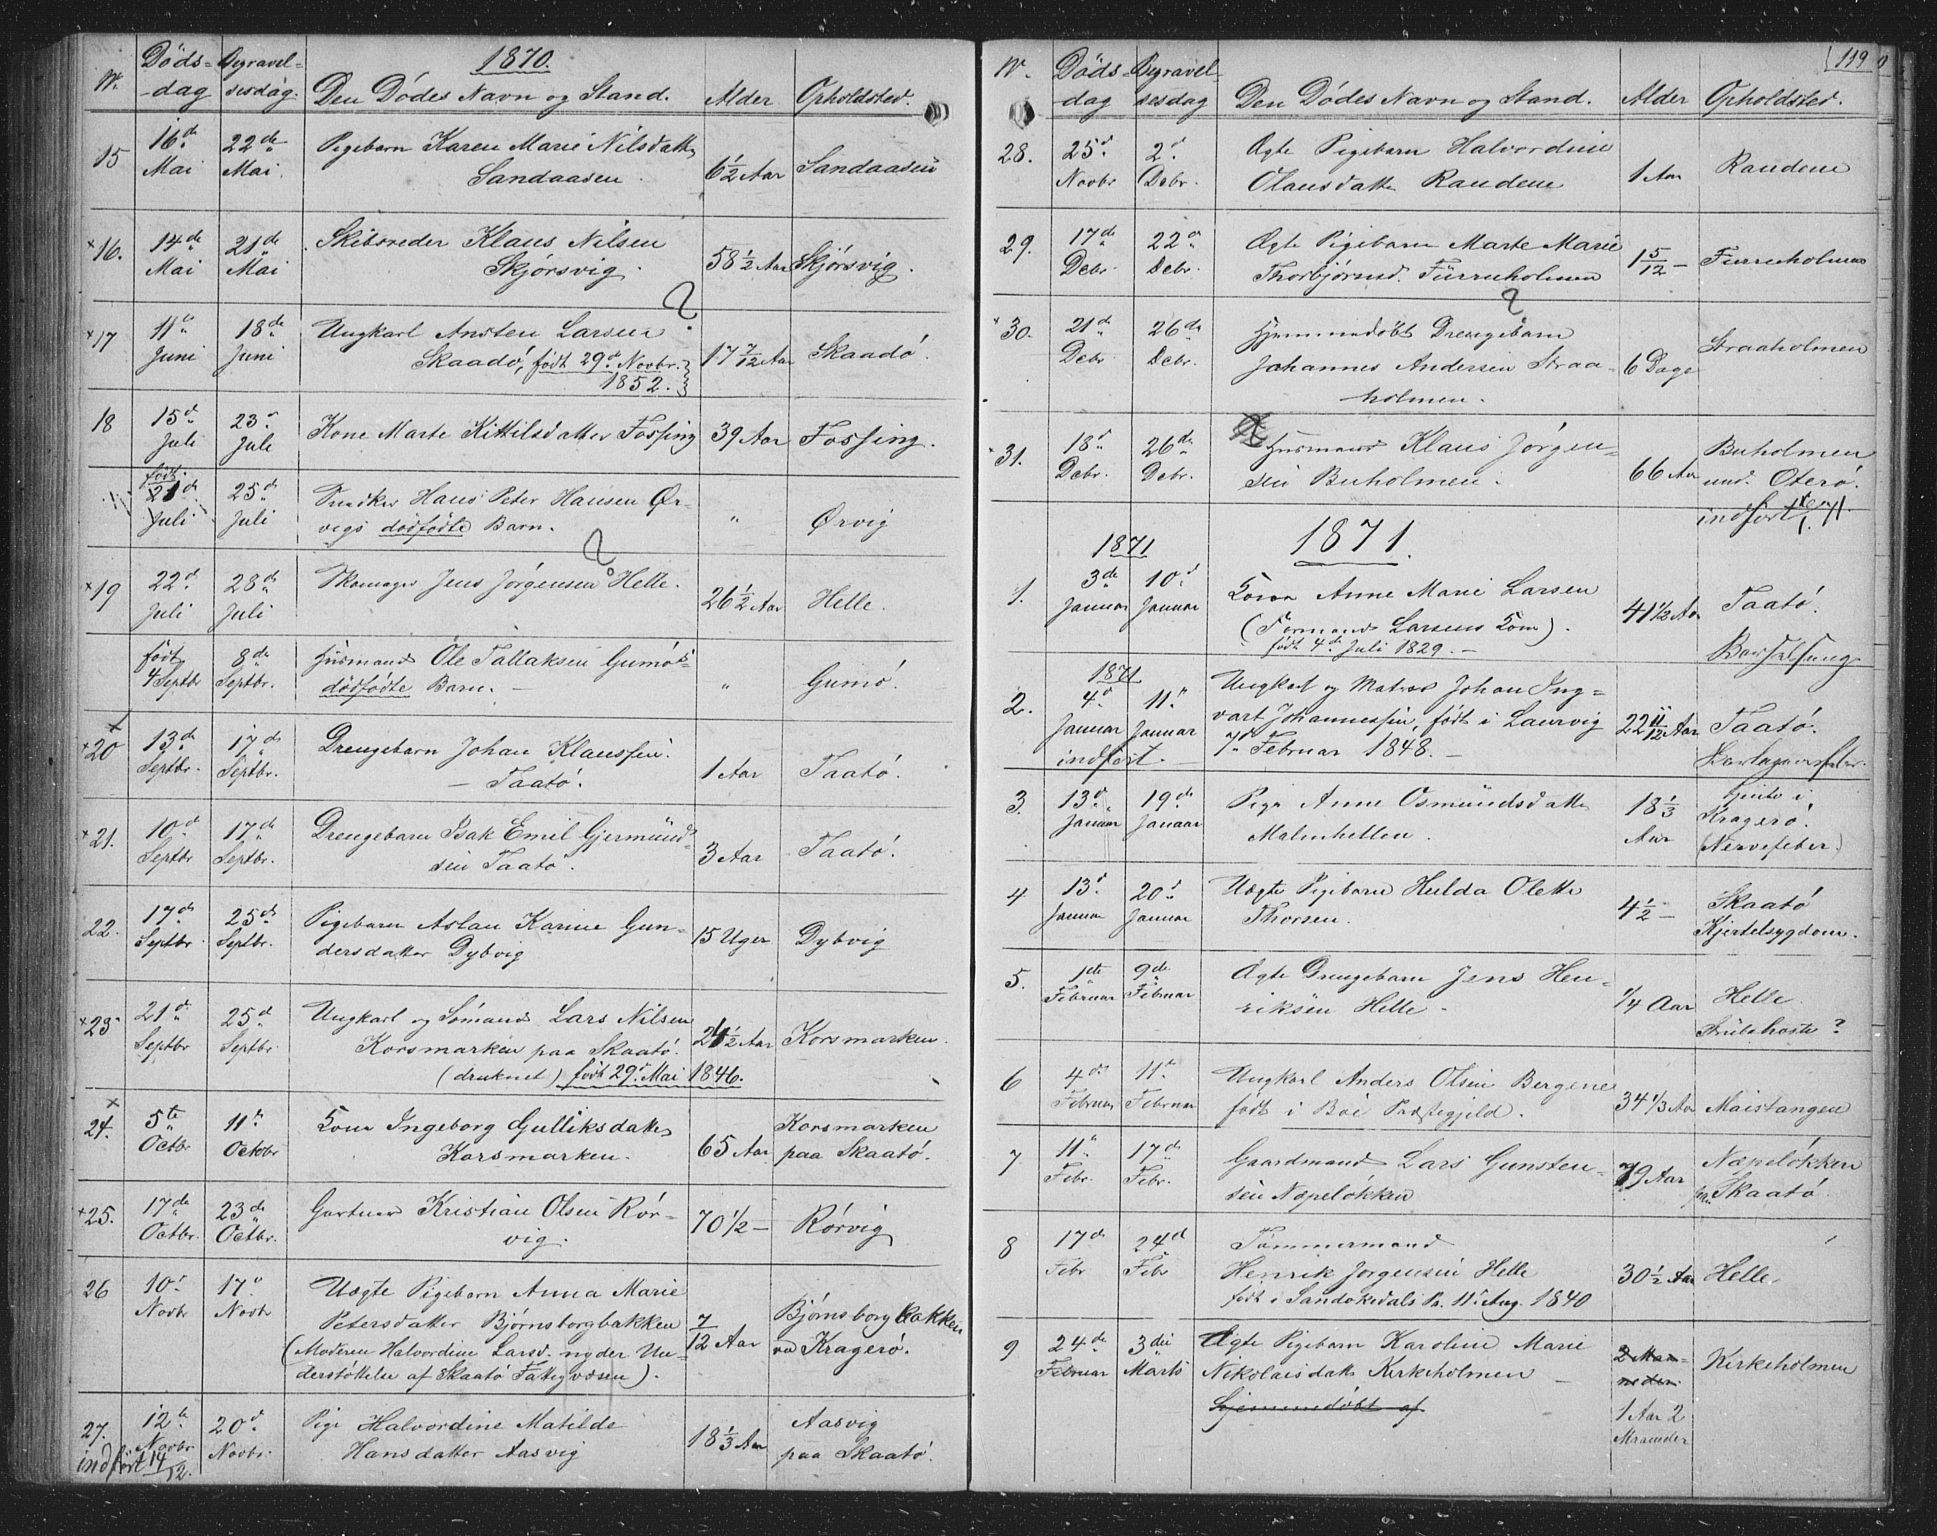 1870.
N.
Døds-
dag
Begravel-
sesdag.
Den Dødes Navn og Stand.
Alder
Opholdsted.
15
16de Mai
22de Mai.
Pigebarn Karen Marie Nilsdatter
Sandaasen.
6½ Aar
Sandaasen
×16.
14de Mai
21de Mai
Skibsreder Klaus Nilsen
Skjørsvig.
58½ Aar
Skjørsvig.
×17
11te Juni
18de Juni
Ungkarl Ansten Larsen ?
Skaadø, født 29d Novbr.
1852.
17 7/12 Aar
Skaadø.
18
15d Juli
23d Juli
Kone Marte Kittilsdatter Fossing
39 Aar
Fossing.
født
21d Juli
25d Juli
Hans Peter Hansen Ør-
vigs dødfødte Barn.
"
Ørvig
×19
22d Juli
28de Juli
Skomager Jens Jørgensen Helle. ?
26½ Aar
Helle.
født
4 Septbr
8de Septbr.
Husmand Ole Tallaksen Gumøs
dødfødte Barn. –
"
Gumø.
×20
13d Septbr.
17d Septbr.
Drengebarn Johan Klaussen.
– Taatø.
1 Aar
Taatø.
×21.
10d Septbr
17de Septbr.
Drengebarn Isak Emil Gjermund-
sen Taatø.
3 Aar
Taatø.
22.
17de Septbr.
25de Septbr.
Pigebarn Aslau Karine Gun-
dersdatter Dybvig
15 Uger
Dybvig
×23
21d Septbr
25d Septbr.
Ungkarl og Sømand Lars Nilsen
Korsmarken paa Skaatø.
(druknet) født 29d Mai 1846.
24½ Aar
Korsmarken.
×
24.
5te Octbr
11te October
Kone Ingeborg Gulliksdatter
Korsmarken.
65 Aar
Korsmarken
paa Skaatø.
×25.
17de Octbr.
23de Octbr.
Gartner Kristian Olsen Rør-
vig.
70½ –
Rørvig
26
10d Novbr.
17d Novbr
Uægte Pigebarn Anna Marie
Petersdatter Bjørnsborgbakken
(Moderen Halvordine Larsd. nyder Un-
derstøttelse af Skaatø Fattigvæsen).
7/12 Aar
Bjørnsborgbakken
ved Kragerø.
27.
12te Novbr.
20d Novbr.
Pige Halvordine Matilde
Hansdatter Aasvig
18⅓ Aar
Aasvig
paa Skaatø.
indført 14/12.
119
N.
Døds-
dag
Begravel-
sesdag
Den Dødes Navn og Stand.
Alder
Opholdsted.
28.
25d Novbr
2d Debr.
Ægte Pigebarn Halvordine
Olausdatter Raudene
1 Aar
Raudene
29.
17de Debr.
22de Debr.
Ægte Pigebarn Marte Marie
Thorbjørnsd. Furuholmen
1 5/12 –
Furuholmen
×30.
21de Debr.
26de Debr.
Hjemmedøbt Drengebarn ?
Johannes Andersen Straa-
holmen.
6 Dage
Straaholmen
×31.
18d Debr.
26de Debr.
Husmand Klaus Jørgen-
sen Buholmen.
66 Aar
Buholmen
und. Oterø.
indført
1871.
1871
1.
3de Januar
10d Januar
Kone Anne Marie Larsen
(Formand Larsens Kone).
født 4de Juli 1829. –
41½ Aar
Taatø.
Barselseng
1871
2.
4d Januar
11te Januar
Ungkarl og Matros Johan Ing-
vart Johannessen, født i Laurvig
7de Februar 1848. –
22 11/12 Aar
Taatø.
indført. –
3.
13d Januar
19de Januar
Pige Anne Osmundsdatter
Malmhellen.
18⅓
Aar
tjente i
Kragerø.
(Nervefeber.)
4
13d Januar
20d Januar
Uægte Pigebarn Hulda Olette
Thorsen.
4½ –
Skaatø
Kjertelsygdom.
5.
1ste Februar
9de Februar
Ægte Drengebarn Jens Hen-
riksen Helle.
¼ Aar
Helle.
6
4de Februar
11te Februar
Ungkarl Anders Olsen Bergene
født i Bøe Præstegjeld.
34⅓ Aar
Maistangen
7
11te Febr.
17de Febr.
Gaardmand Lars Gunsten-
sen Næpeløkken
79 Aar
Næpeløkken
paa Skaatø.
8
17de Febr
24d Febr
Tømmermand
Henrik Jørgensen Helle
født i Sandøkedals Pr. 11te Aug. 1840
30½ Aar
Helle.
9
24de Februar
3die Marts
Ægte Pigebarn Karoline Marie
Nikolaisdatter Kirkeholmen –
Hjemmedøbt af
2 Maa-
neder.
1 Aar 2
Maaneder
Kirkeholmen